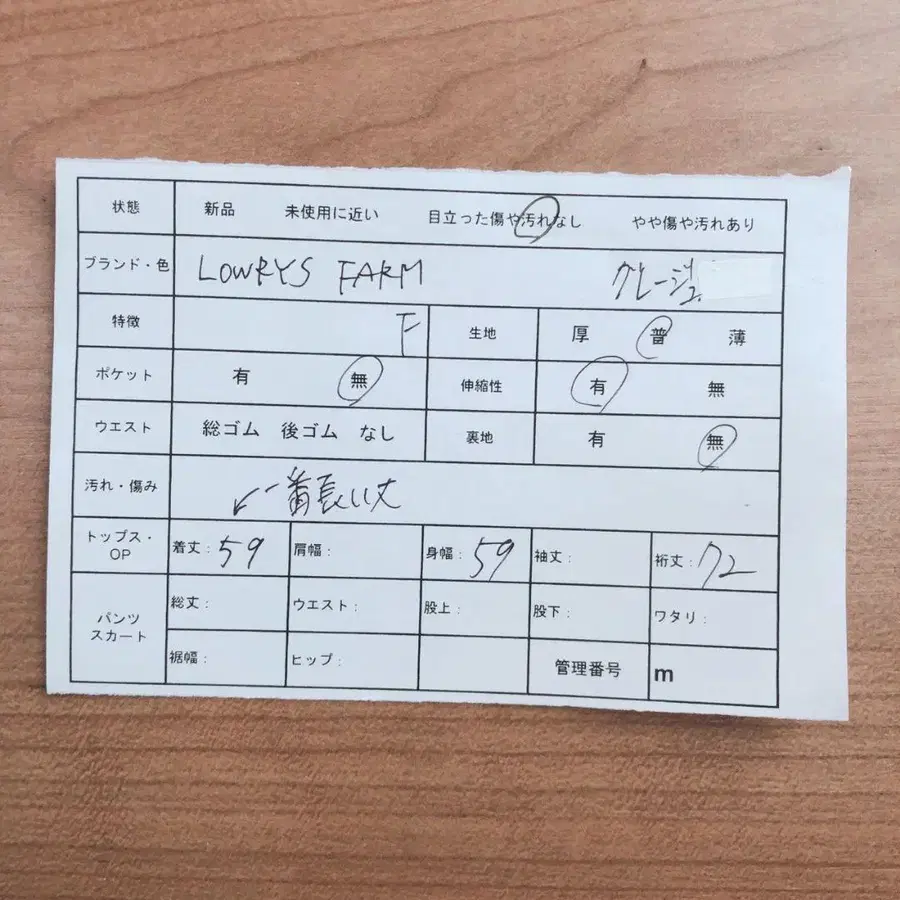 状態 新品 未使用に近い 目立った傷や汚れなし やや傷や汚れあり
ブランド・色 LOWRYS FARM グレージュ
特徴 F 生地 厚 普 薄
ポケット 有 無 伸縮性 有 無
ウエスト 総ゴム 後ゴム なし 裏地 有 無
汚れ・傷み ↙一番長い丈
トップス・OP 着丈:59 肩幅: 身幅:59 袖丈: 裄丈:72
パンツ スカート 総丈: ウエスト: 股上: 股下: ワタリ:
裾幅: ヒップ: 管理番号 m